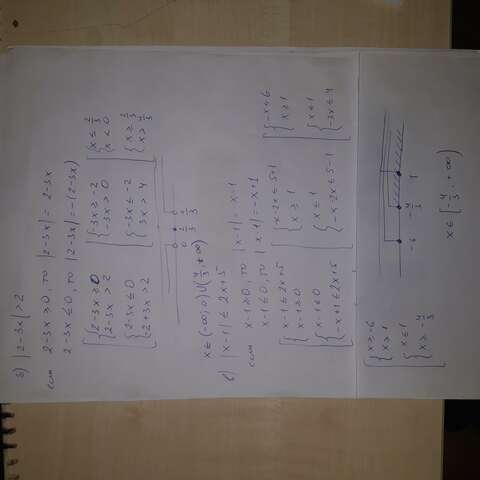 б) |2-3x| > 2
если 2-3x ≥ 0, то |2-3x| = 2-3x
2-3x ≤ 0, то |2-3x| = -(2-3x)
[ { 2-3x ≥ 0 [ { -3x ≥ -2 [ { x ≤ 2/3
2-3x > 2 -3x > 0 x < 0
{ 2-3x ≤ 0 { -3x ≤ -2 { x ≥ 2/3
-2+3x > 2 3x > 4 x > 4/3
0 2/3 4/3
x ∈ (-∞; 0) ∪ (4/3; +∞)
в) |x-1| ≤ 2x+5
если x-1 ≥ 0, то |x-1| = x-1
x-1 ≤ 0, то |x-1| = -x+1
[ { x-1 ≤ 2x+5 [ { x-2x ≤ 5+1 [ { -x ≤ 6
x-1 ≥ 0 x ≥ 1 x ≥ 1
{ x-1 ≤ 0 { x ≤ 1 { x ≤ 1
-x+1 ≤ 2x+5 -x-2x ≤ 5-1 -3x ≤ 4
[ { x ≥ -6
x ≥ 1
{ x ≤ 1
x ≥ -4/3
-6 -4/3 1
x ∈ [-4/3; +∞)